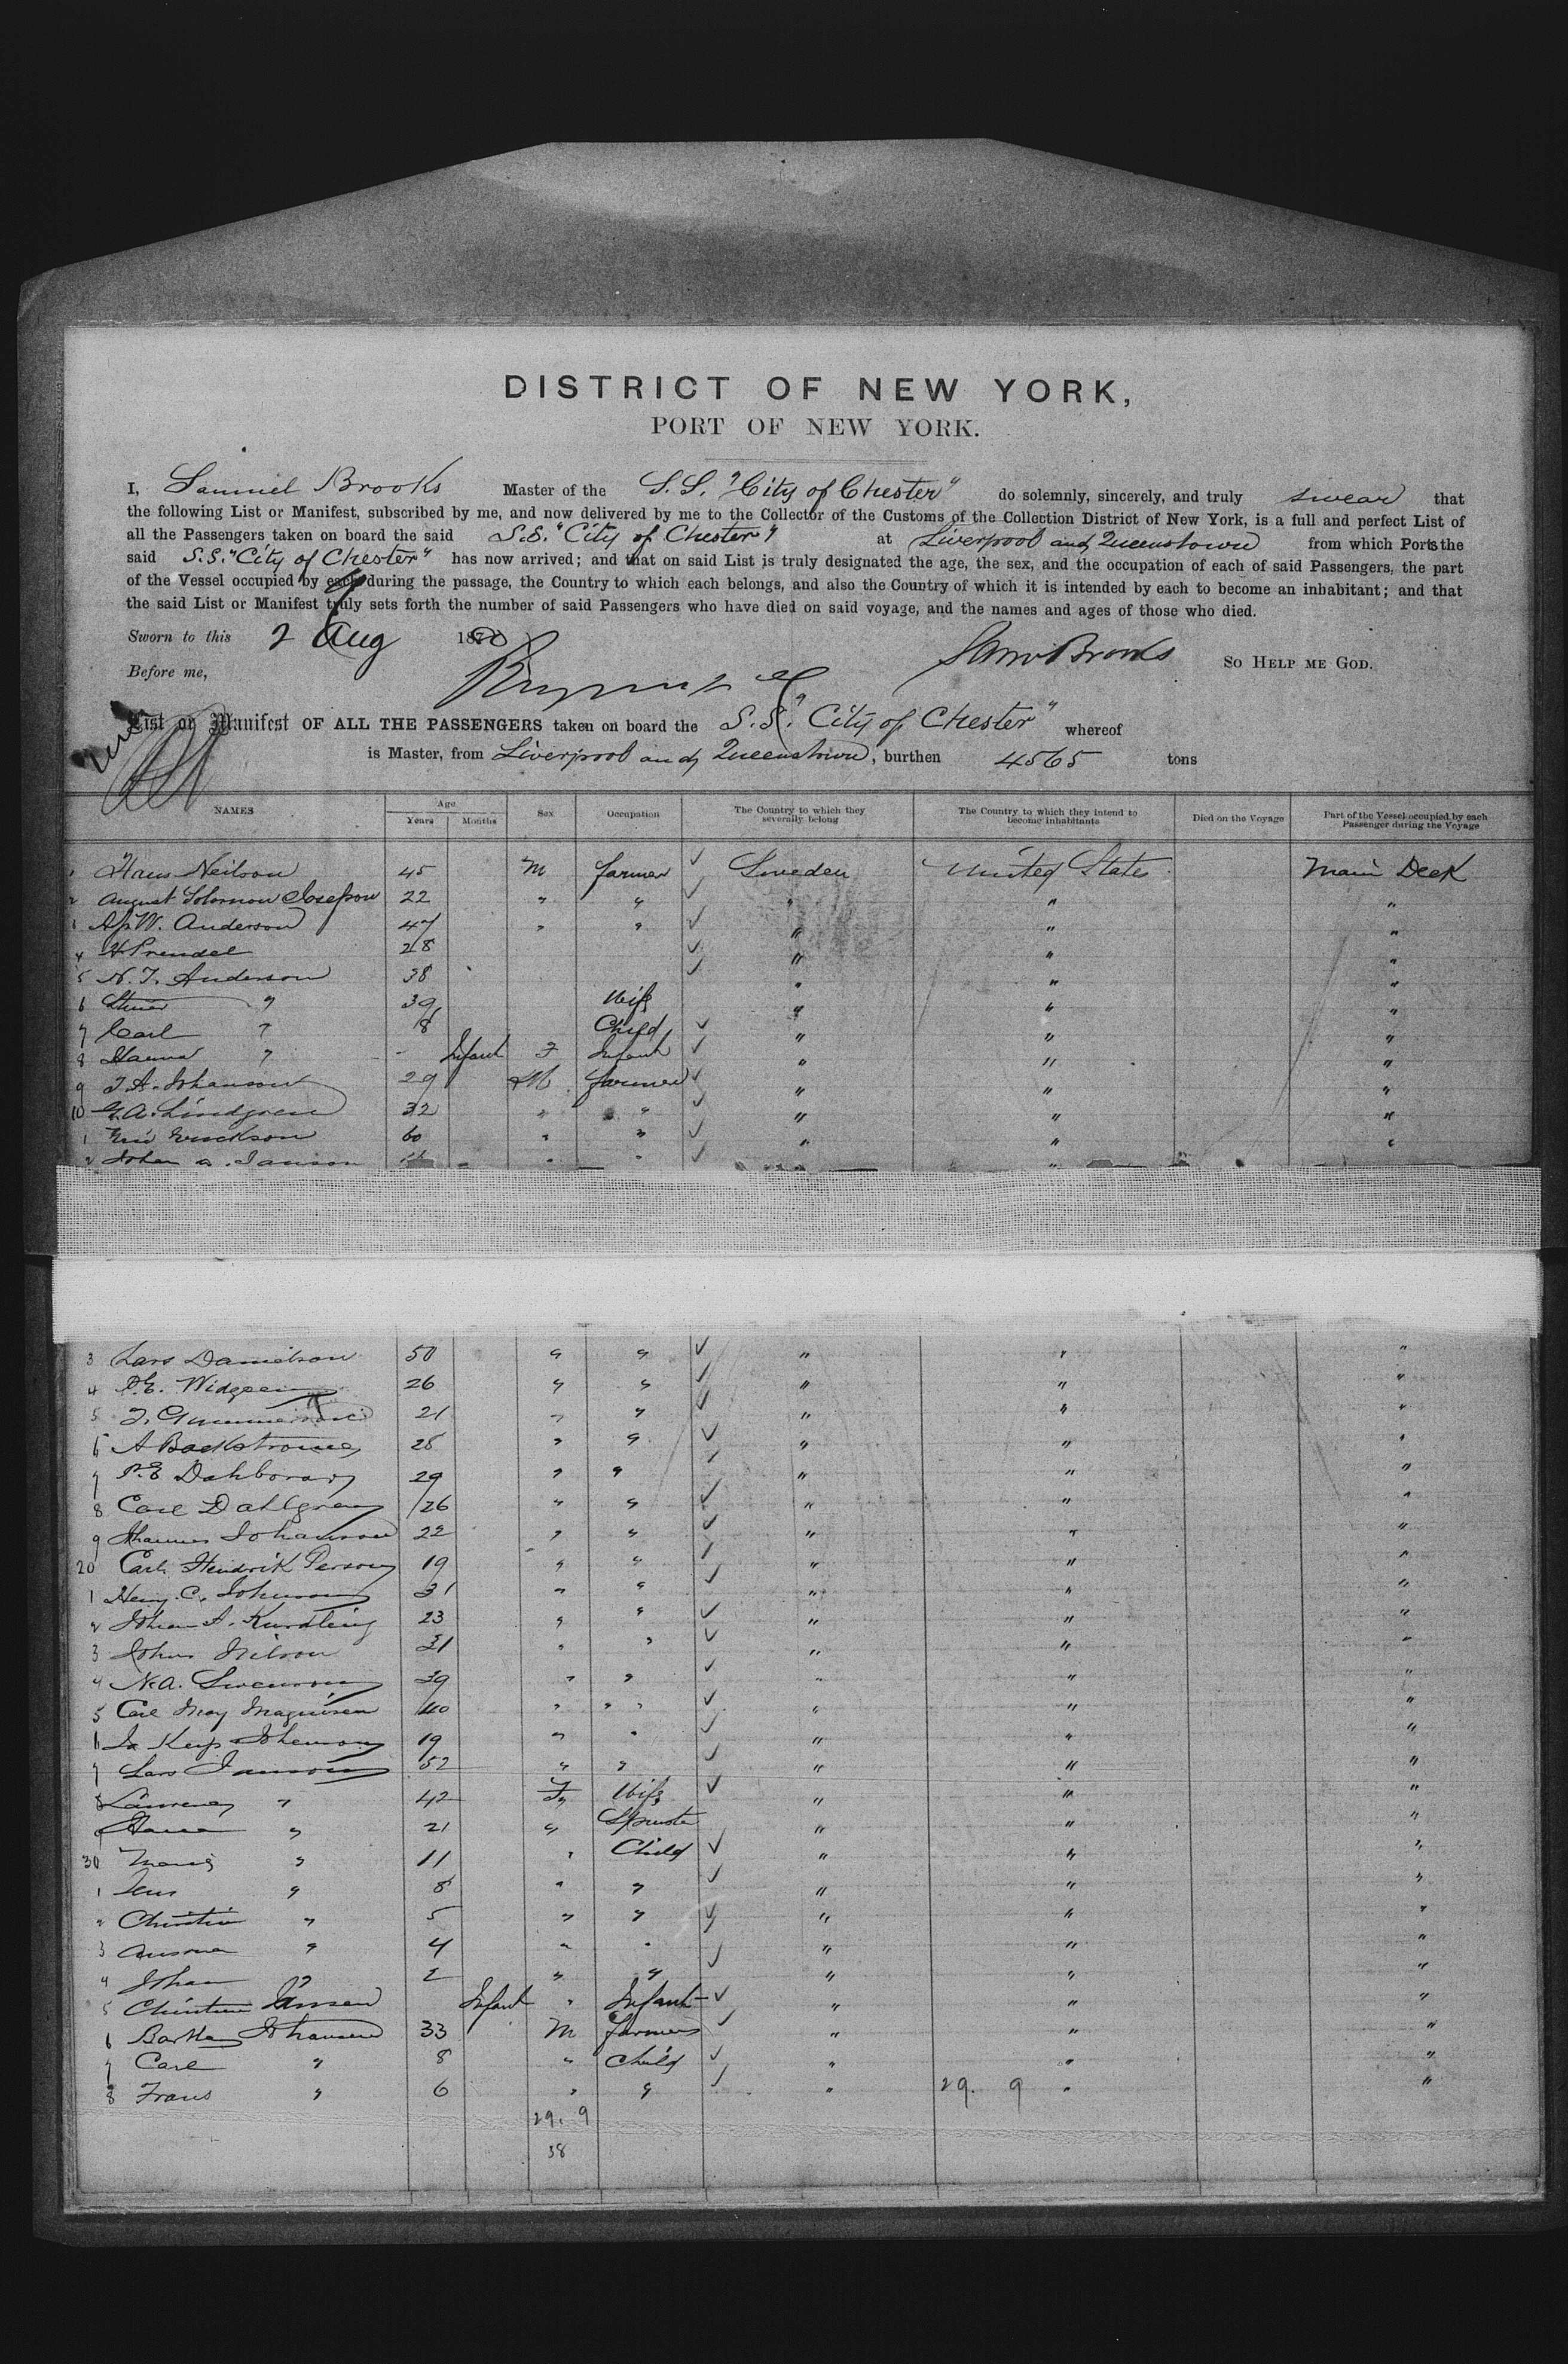 DISTRICT OF NEW YORK,
PORT OF NEW YORK.
I, Samuel Brooks Master of the S.S. "City of Chester" do solemnly, sincerely, and truly swear that
the following List or Manifest, subscribed by me, and now delivered by me to the Collector of the Customs of the Collection District of New York, is a full and perfect List of
all the Passengers taken on board the said S.S. "City of Chester" at Liverpool and Queenstown from which Ports the
said S.S. "City of Chester" has now arrived; and that on said List is truly designated the age, the sex, and the occupation of each of said Passengers, the part
of the Vessel occupied by each during the passage, the Country to which each belongs, and also the Country of which it is intended by each to become an inhabitant; and that
the said List or Manifest truly sets forth the number of said Passengers who have died on said voyage, and the names and ages of those who died.
Sworn to this 2 Aug 18
Before me, Saml Brooks So HELP ME GOD.
List or Manifest OF ALL THE PASSENGERS taken on board the S.S. "City of Chester" whereof
is Master, from Liverpool and Queenstown, burthen 4565 tons
NAMES Age Years Months Sex Occupation The Country to which they severally belong The Country to which they intend to become inhabitants Died on the Voyage Part of the Vessel occupied by each Passenger during the Voyage
1 Hans Neilson 45 M farmer Sweden United States Main Deck
2 August Solomon Josefson 22 " " " " "
3 W. Anderson 47 " " " " "
4 28 " " "
5 N. Anderson 38 " " "
6 " 39 Wife " " "
7 Carl " 8 Child " " "
8 Hanna " - Infant F Infant " " "
9 Johanson 29 M farmer " " "
10 G.A. Lindgren 32 " " " " "
1 Eric Erickson 60 " " " " "
2 Johan a. Janson " " " "
3 Lars Danielson 50 " " " " "
4 P.E. 26 " " " " "
5 21 " " " " "
6 A Backstrom " " " " "
7 P.E 29 " " " " "
8 Carl Dahlgren 26 " " " " "
9 Johannes Johanson 22 " " " " "
20 Carl Hendrik Person 19 " " " " "
1 Henry C. Johnson 31 " " " " "
2 Johan A. 23 " " " " "
3 Johan Nilson 31 " " " " "
4 N.A. Swenson 39 " " " " "
5 Carl 40 " " " " "
6 19 " " " " "
7 Lars Janson 52 " " " " "
8 " 42 F Wife " " "
9 " 21 " Spinster " " "
30 " 11 " Child " " "
1 Jens " 8 " " " " "
2 Christin " 5 " " " " "
3 " 4 " " " " "
4 Johan " 2 " " " " "
5 Jansen Infant " Infant " " "
6 Johansen 33 M farmer " " "
7 Carl " 8 " Child " " "
8 Frans " 6 " " " 29. 9 " "
29. 9
38